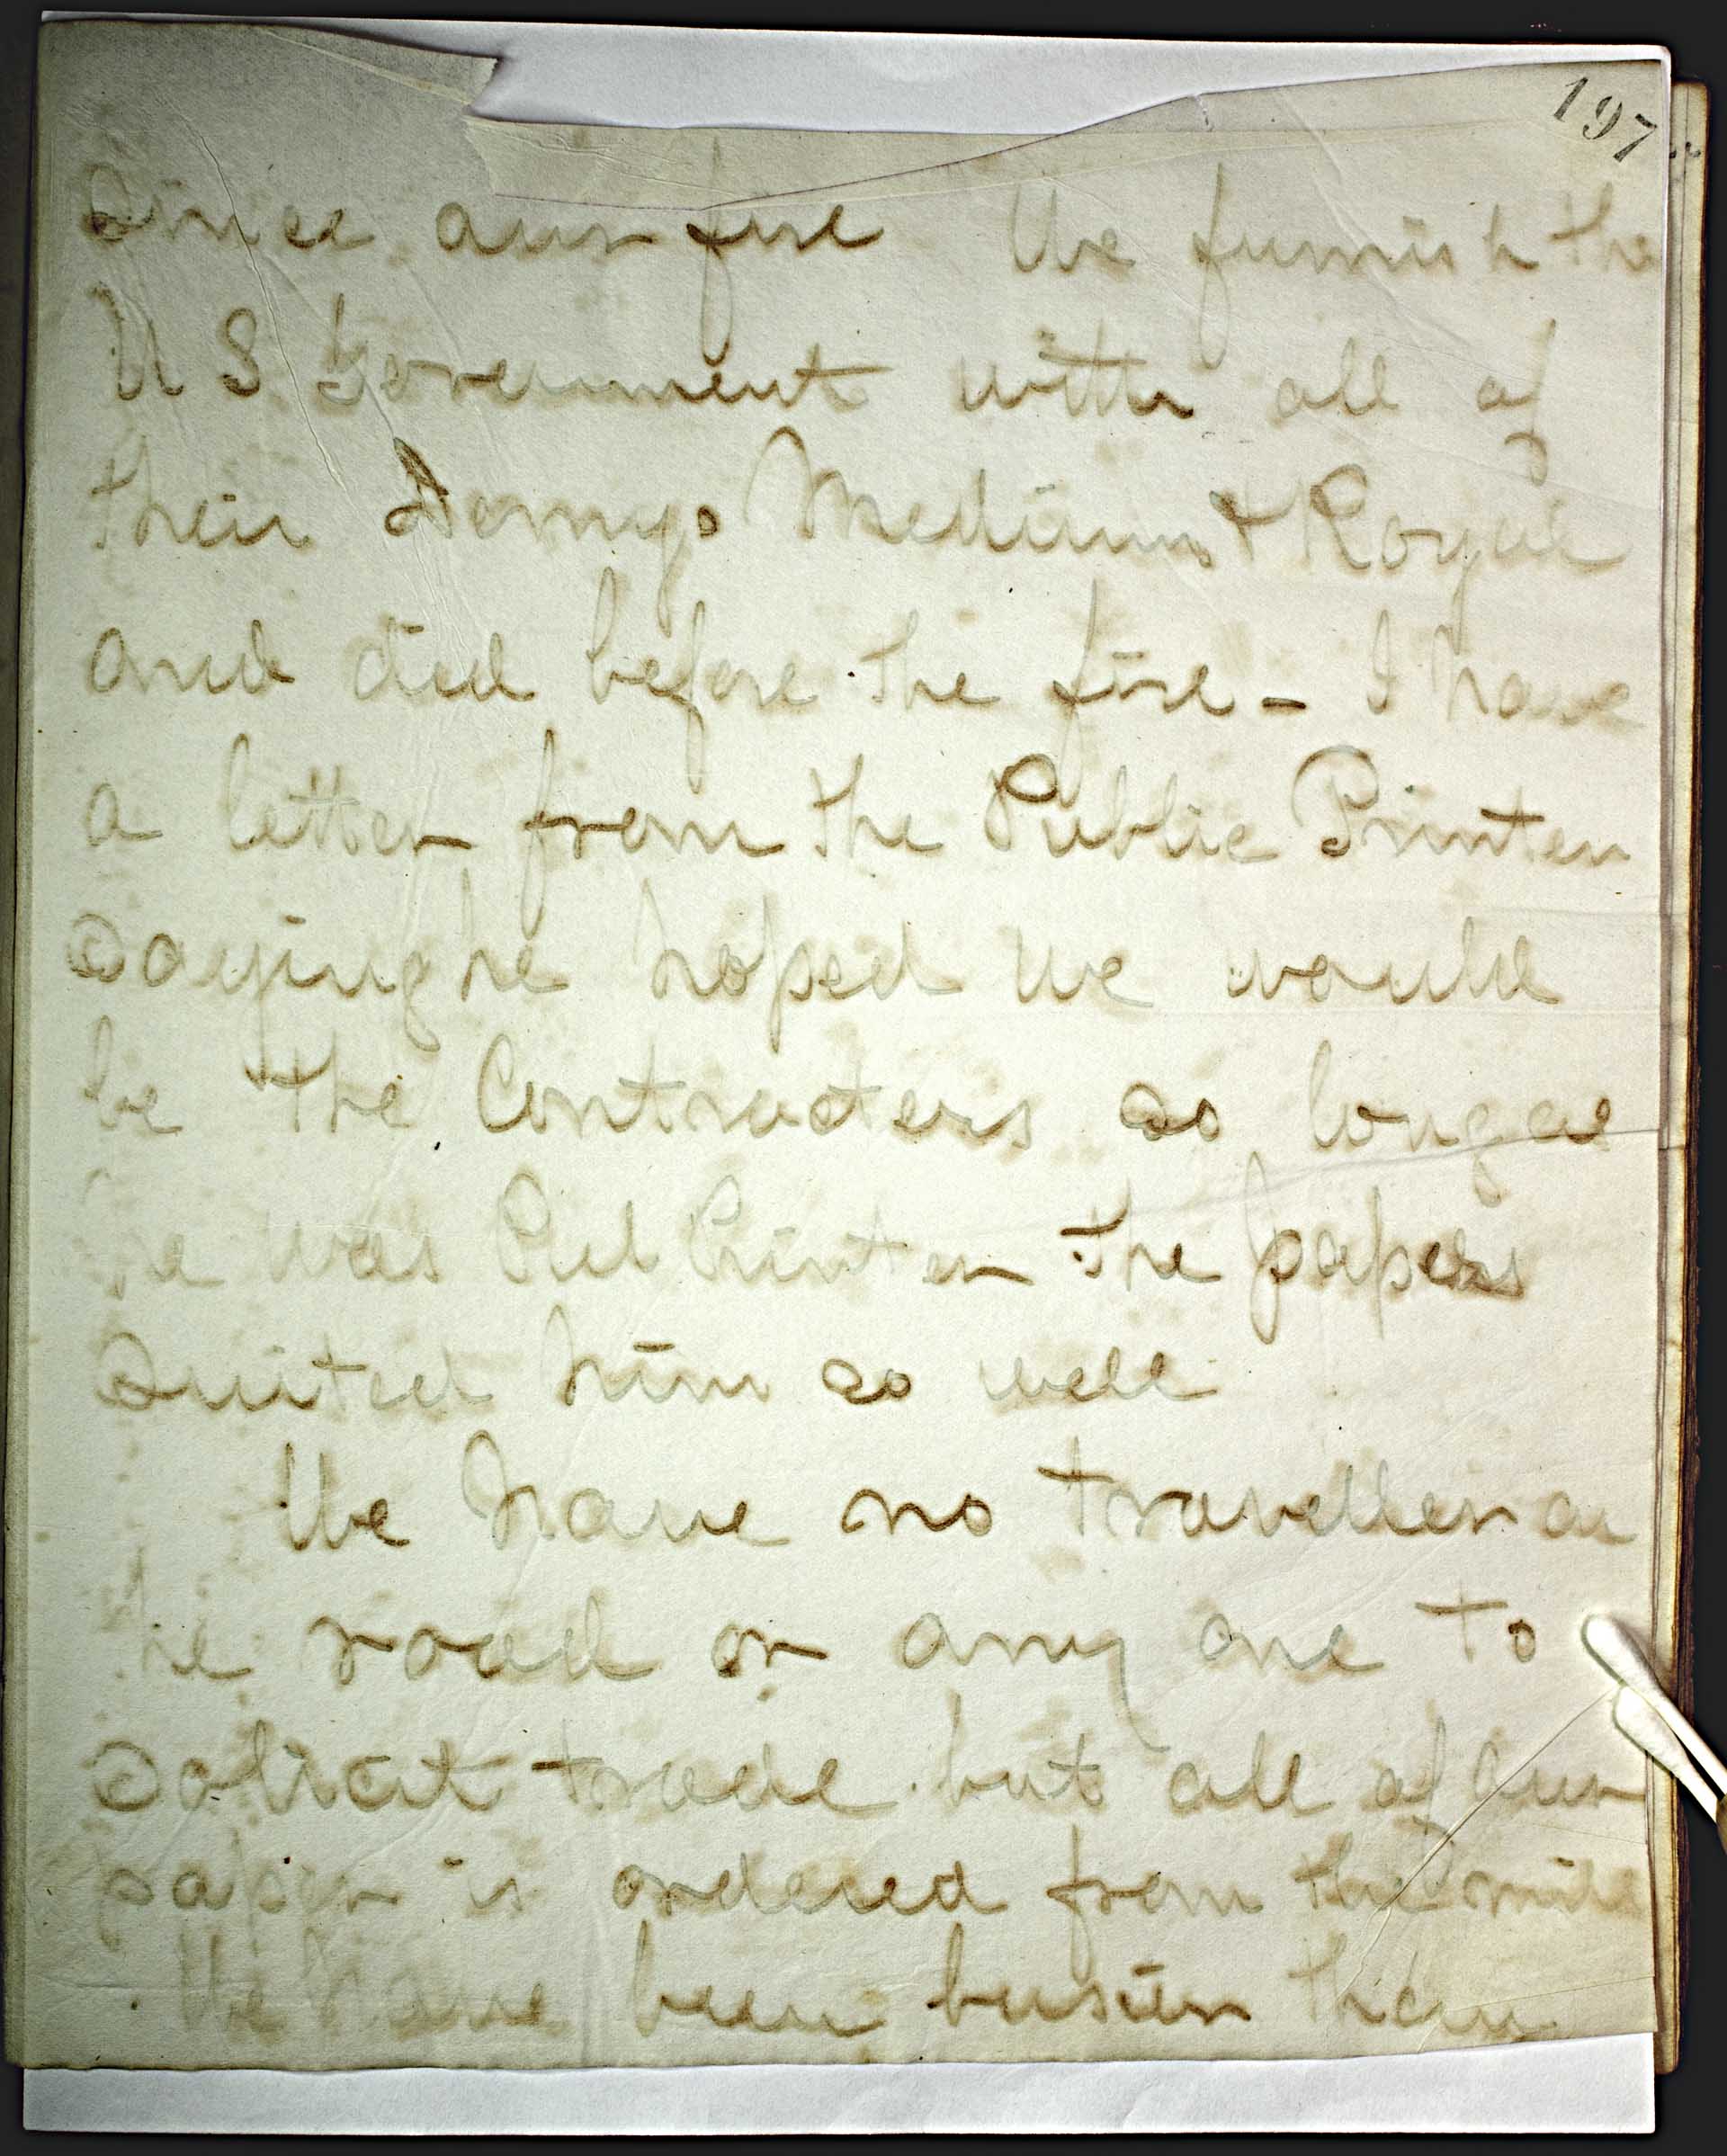 197
Since our fire We furnish the
U S Government with all of
their Demys Mediums & Royals
and did before the fire - I have
a letter from the Public Printer
Saying he hoped we would
be the Contractors as long as
he was Pub Printer the papers
Suited him so well
We have no traveller on
the road or any one to
Solicit trade but all of our
paper is ordered from the mill
We have been busier than